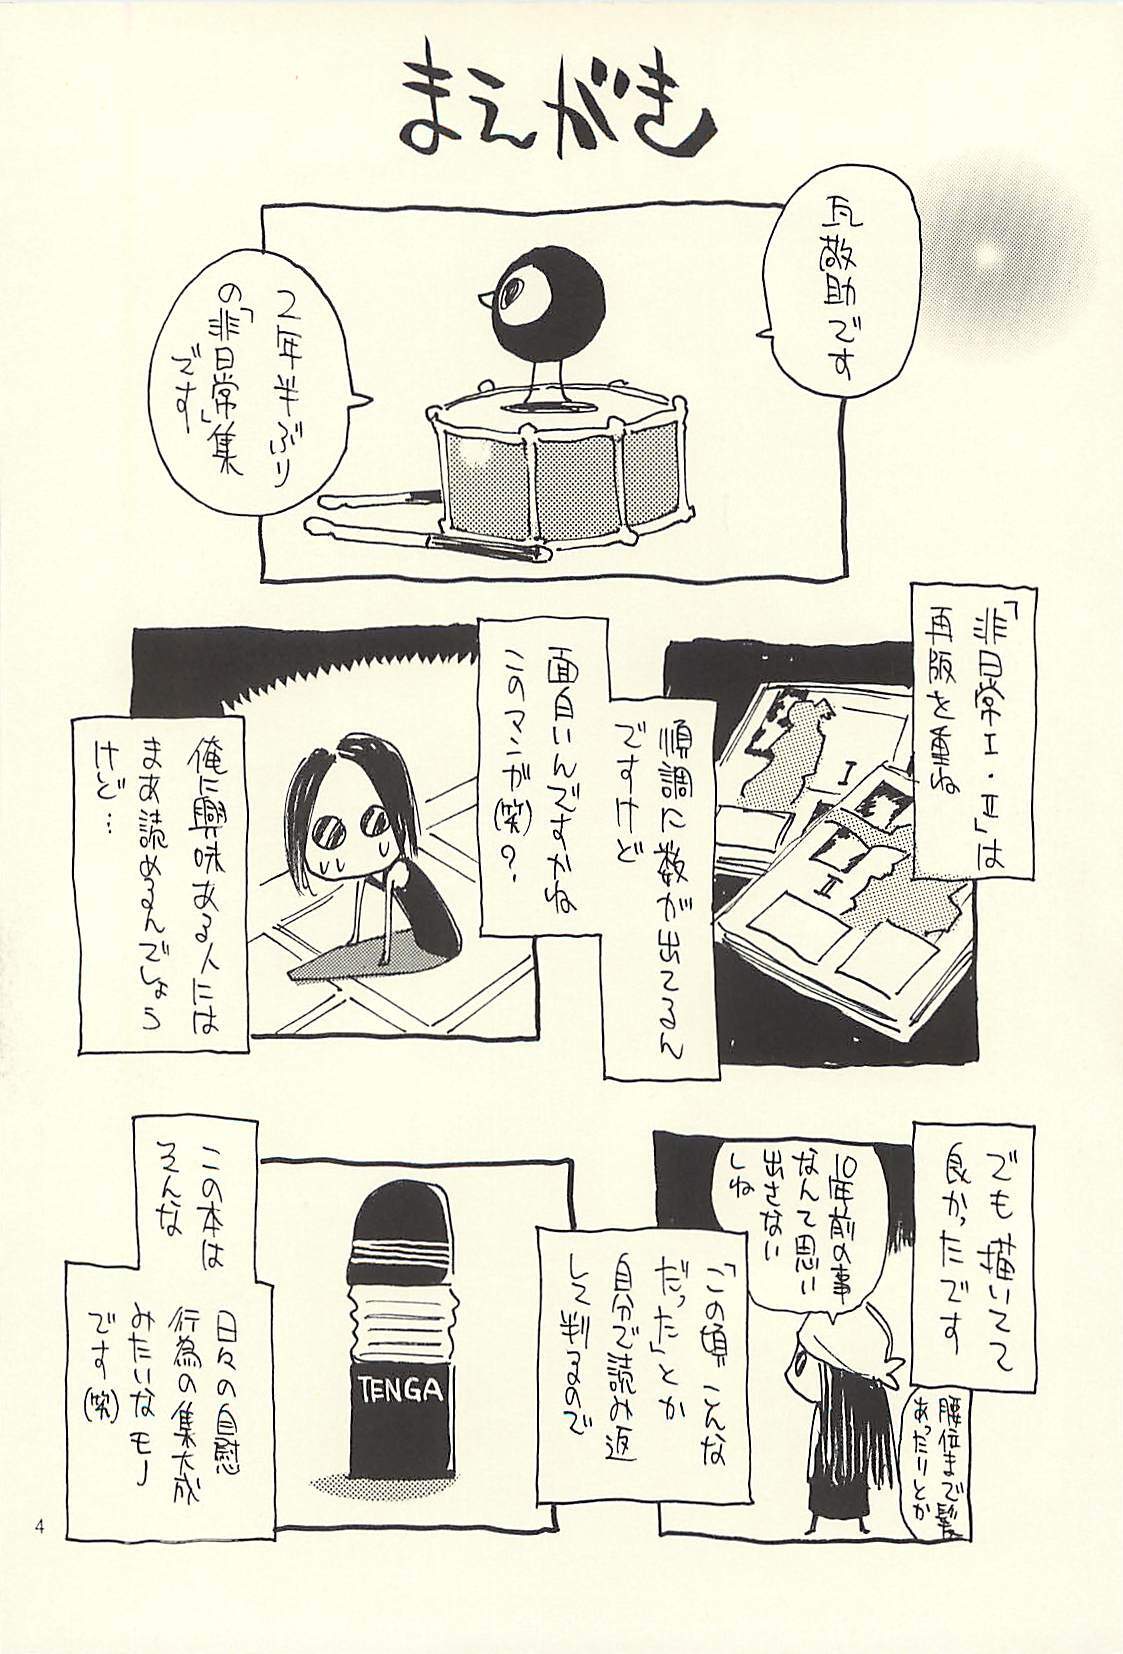 まえがき
瓦敬助です
2年半ぶり
の「非日常集」
です
「非日常Ⅰ・Ⅱ」は
再版を重ね
Ⅰ
Ⅱ
順調に数が出てるん
ですけど
面白いんですかね
このマンガ(笑)?
俺に興味ある人には
まあ読めるんでしょう
けど…
でも描いてて
良かったです
10年前の事
なんて思い
出さない
しね
腰位まで髪
あったりとか
「この頃こんな
だった」とか
自分で読み返
して判るので
TENGA
この本は
そんな
日々の自慰
行為の集大成
みたいなモノ
です(笑)
4